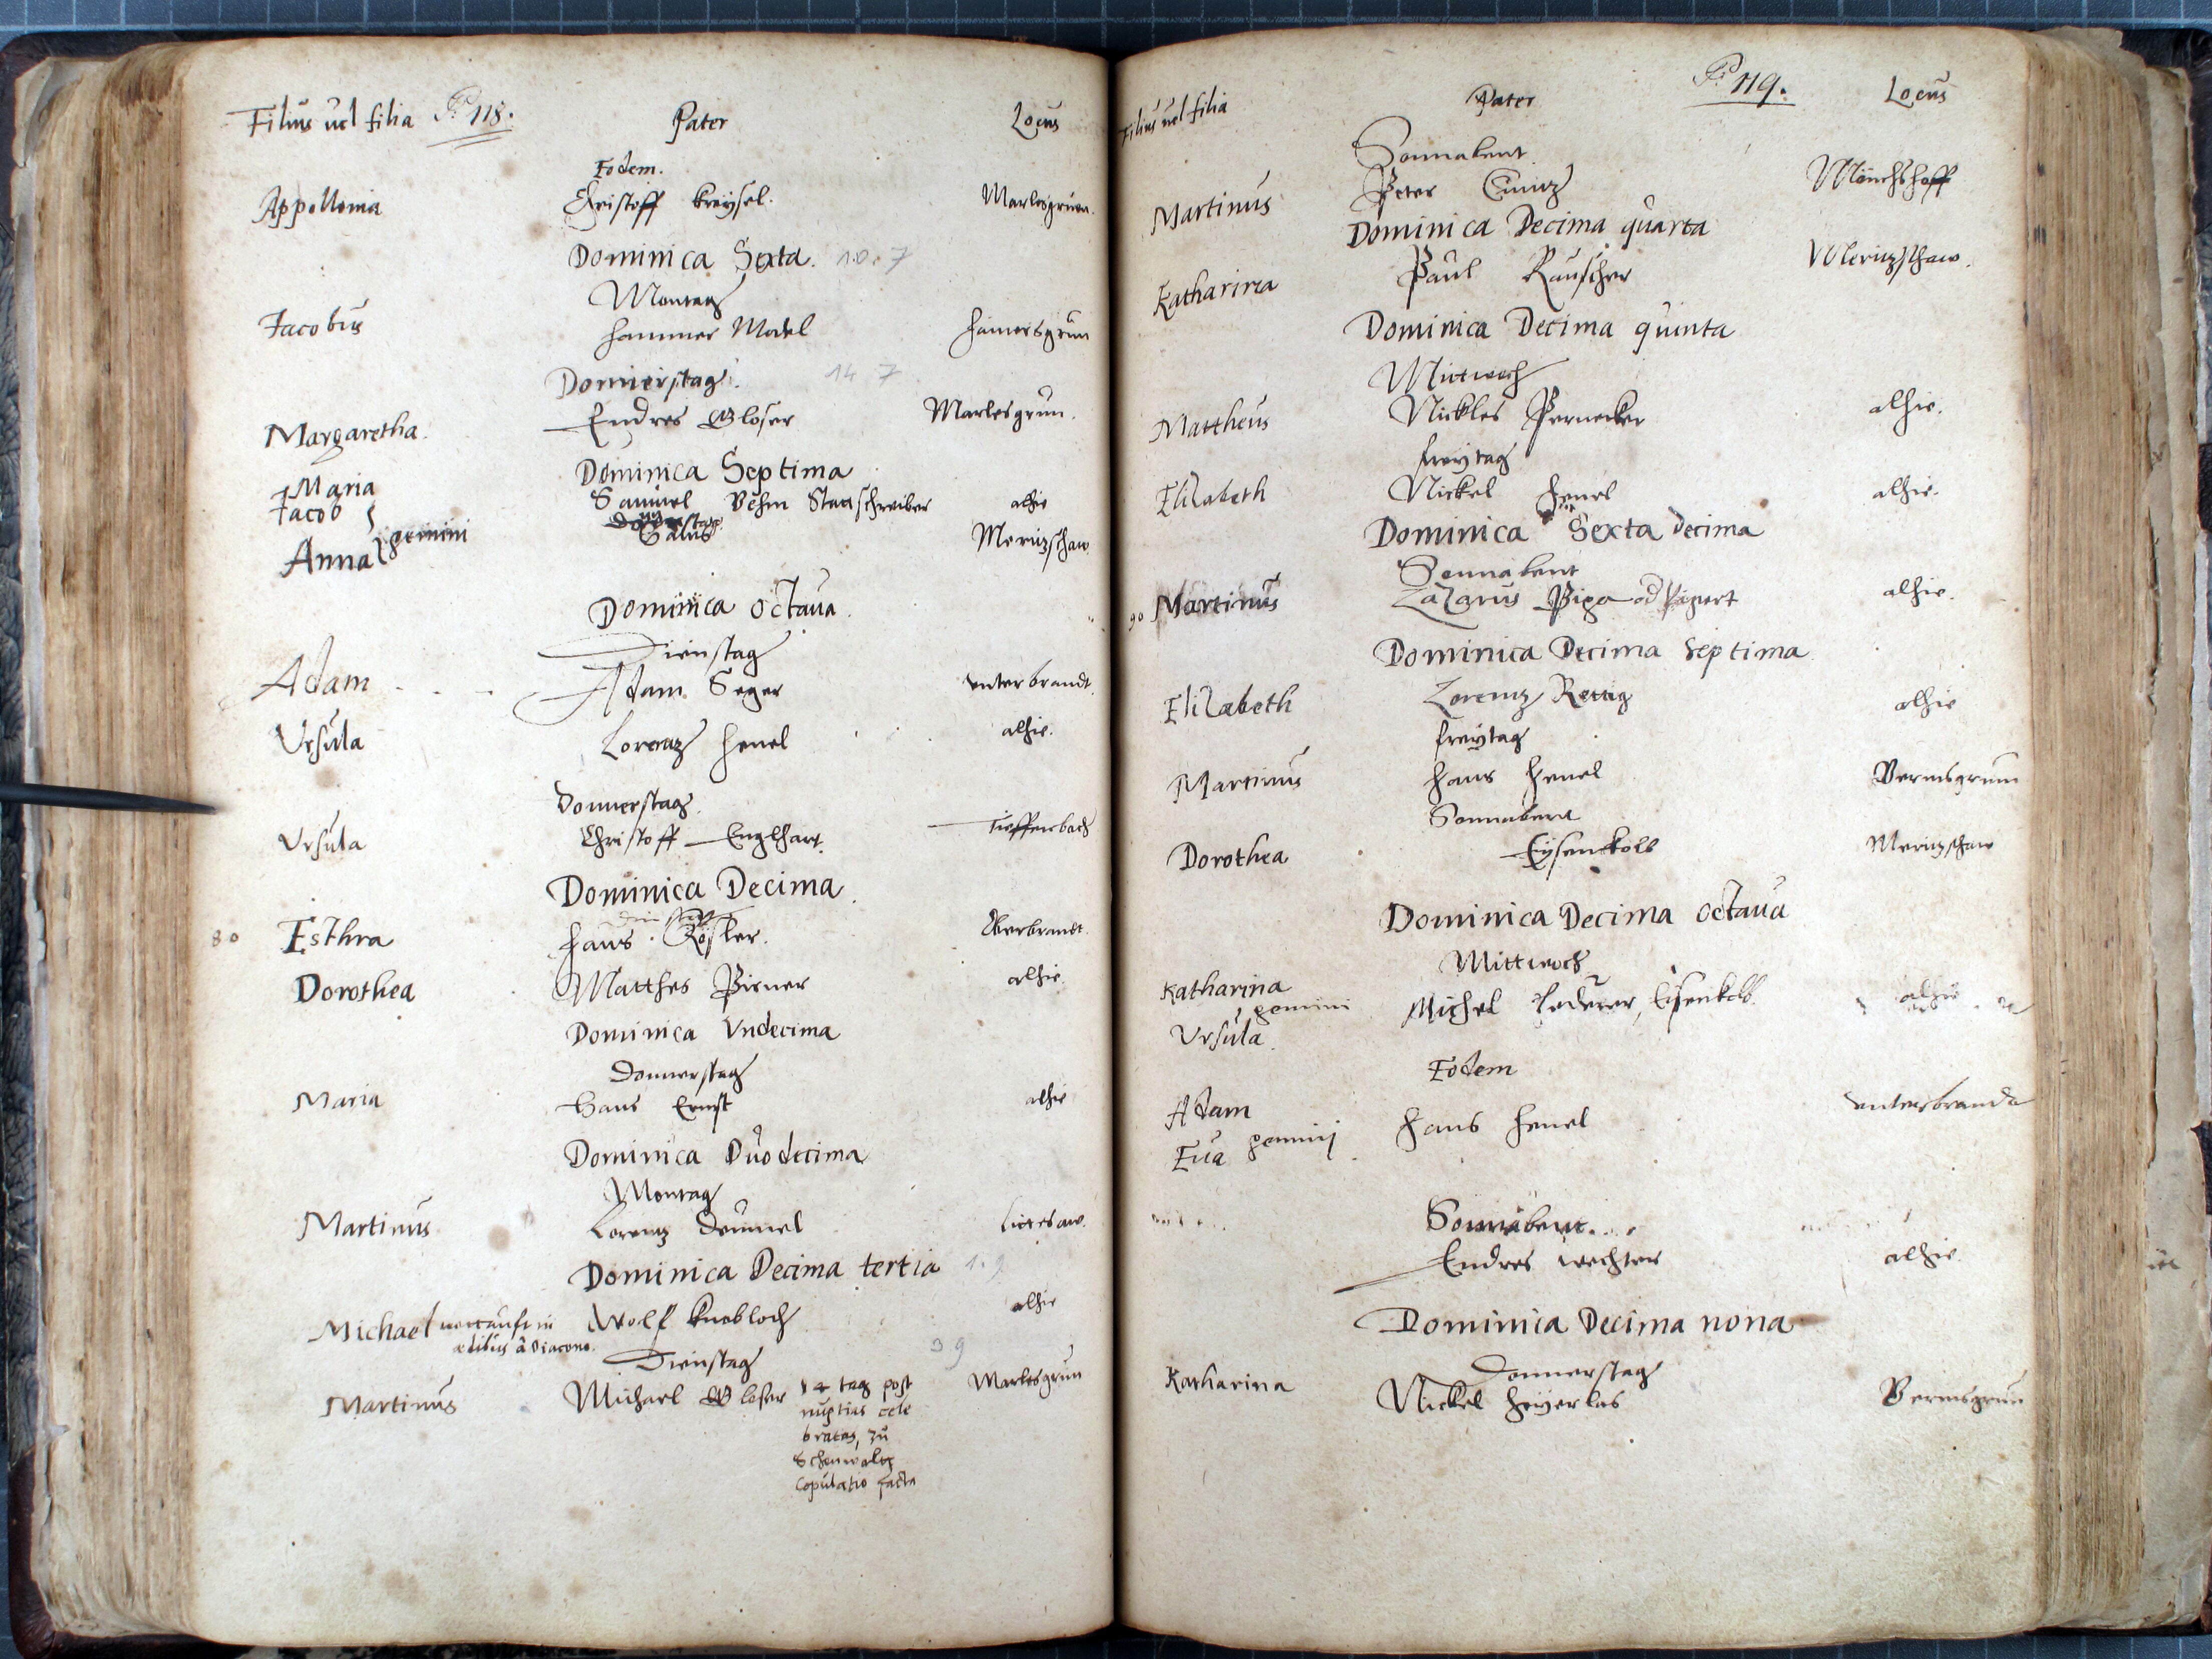 Filius uel filia P. 118. Pater Locus
Eodem.
Appollonia Christoff Kreÿsel. Marlesgrün.
Dominica Sexta. 10. 7
Montag
Jacobus Hammer Madel Hamersgrün
Donnerstag. 14 7
Margaretha. Endres Gloser Marlesgrun.
Dominica Septima
†Maria Samuel Behm Statschreiber alhie
†Jacob
Anna gemini Meritzschaw
Dominica octaua.
Dienstag
Adam Adam Seger vnterbrandt.
Vrsula Lorentz Henel alhie.
Donnerstag.
Vrsula Christoff Englhart. Tieffenbach
Dominica Decima.
Dienstag
80 Esthra Hans Rösler. Oberbrandt.
Dorothea Matthes Pirner alhie.
Dominica Vndecima
Donnerstag
Maria Hans Ernst alhie
Dominica Duodecima
Montag
Martinus Lorentz Deumel
Dominica Decima tertia 1. 9
Michael Wolf Knebloch alhie
in ædibus à Diacono.
Dienstag 3 9
Martinus Michael Gloser 14 tag post Marlesgrun
nuptias cele
bratas, zu
Schenwalt
copulatio facta
Filius uel filia Pater P. 119. Locus
Sonnabent.
Martinus Peter Cuntz Mönchshoff
Dominica Decima quarta
Katharina Paul Rauscher Meritzschaw.
Dominica Decima quinta
Mittwoch
Mattheus Nickles Pernecker alhie.
freytag
Elizabeth Nickel Henel alhie.
Dominica Sexta Decima
Sonnabent
90 Martinus Lazarus alhie.
Dominica Decima Septima
Elizabeth Lorentz Rettig alhie
freÿtag
Martinus Hans Henel Bermsgrun
Sonnabent
Dorothea Eÿsenkolb Meritzschaw
Dominica Decima octaua
Mittwoch
Katharina Michel Lederer, Eisenkolb. alhie
gemini
Vrsula.
Eodem
Adam Hans Henel vnterbrandt
gemini
Eua
Sonnabent
Endres Wechter alhie.
Dominica Decima nona
Donnerstag
Katharina Nickel Bermsgrun